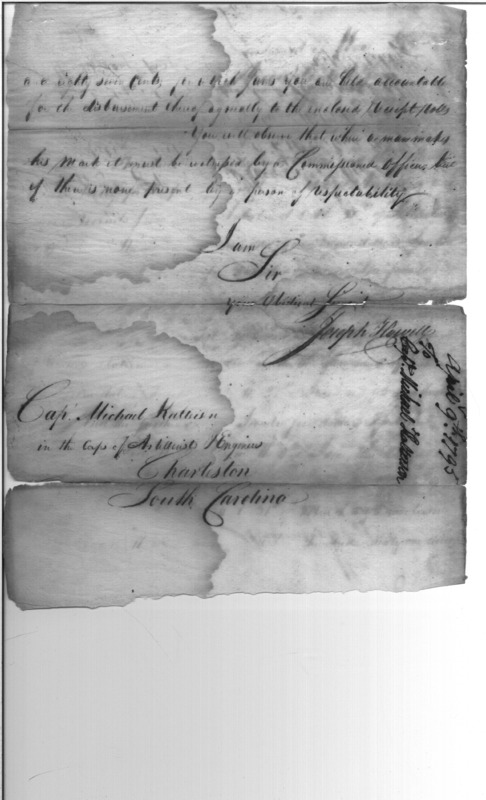 and eighty seven Cents for which Sums you are held accountable
for the disbursment thereof agreeably to the enclosed Receipt Rolls
You will observe that when a man makes
his Mark it must be witnessed by a Commissioned Officer, but
if there is none present by a person of respectability
I am
Sir
your Obedient Servant
Joseph Howell
Cap.t Michael Kalteisen
in the Corps of Artillerists & Engineers
Charleston
South Carolina
April 9th 1795
To
Capt. Michael Kalteisen